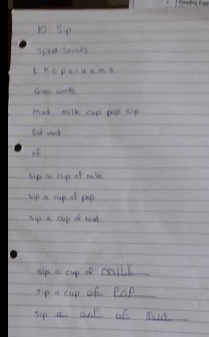 10. Sip
Speed Sounds
Green words
mud milk cup pop sip
Red word
of
sip a cup of milk
sip a cup of pop
sip a cup of mud
sip a cup of milk
sip a cup of pop
sip a cup of mud